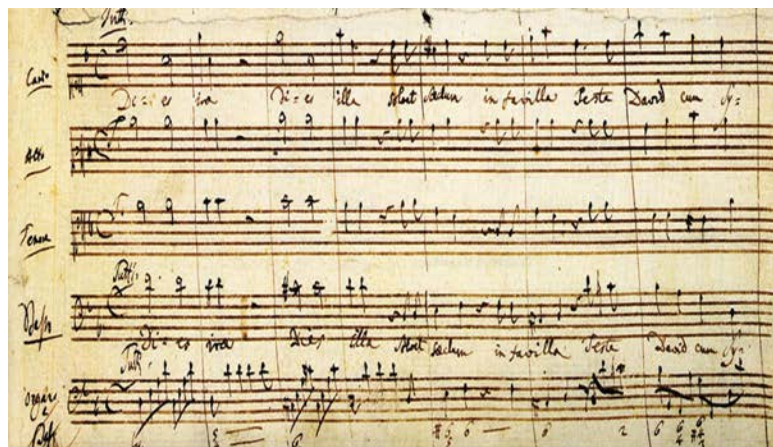 Tutti
Canto
Di=es ira Di=es illa solvet saeclum in favilla Teste David cum Sy=
Alto
Tenore
Tutti
Basso
Di=es ira Dies illa solvet saeclum in favilla Teste David cum Sy=
Tutti
Organo